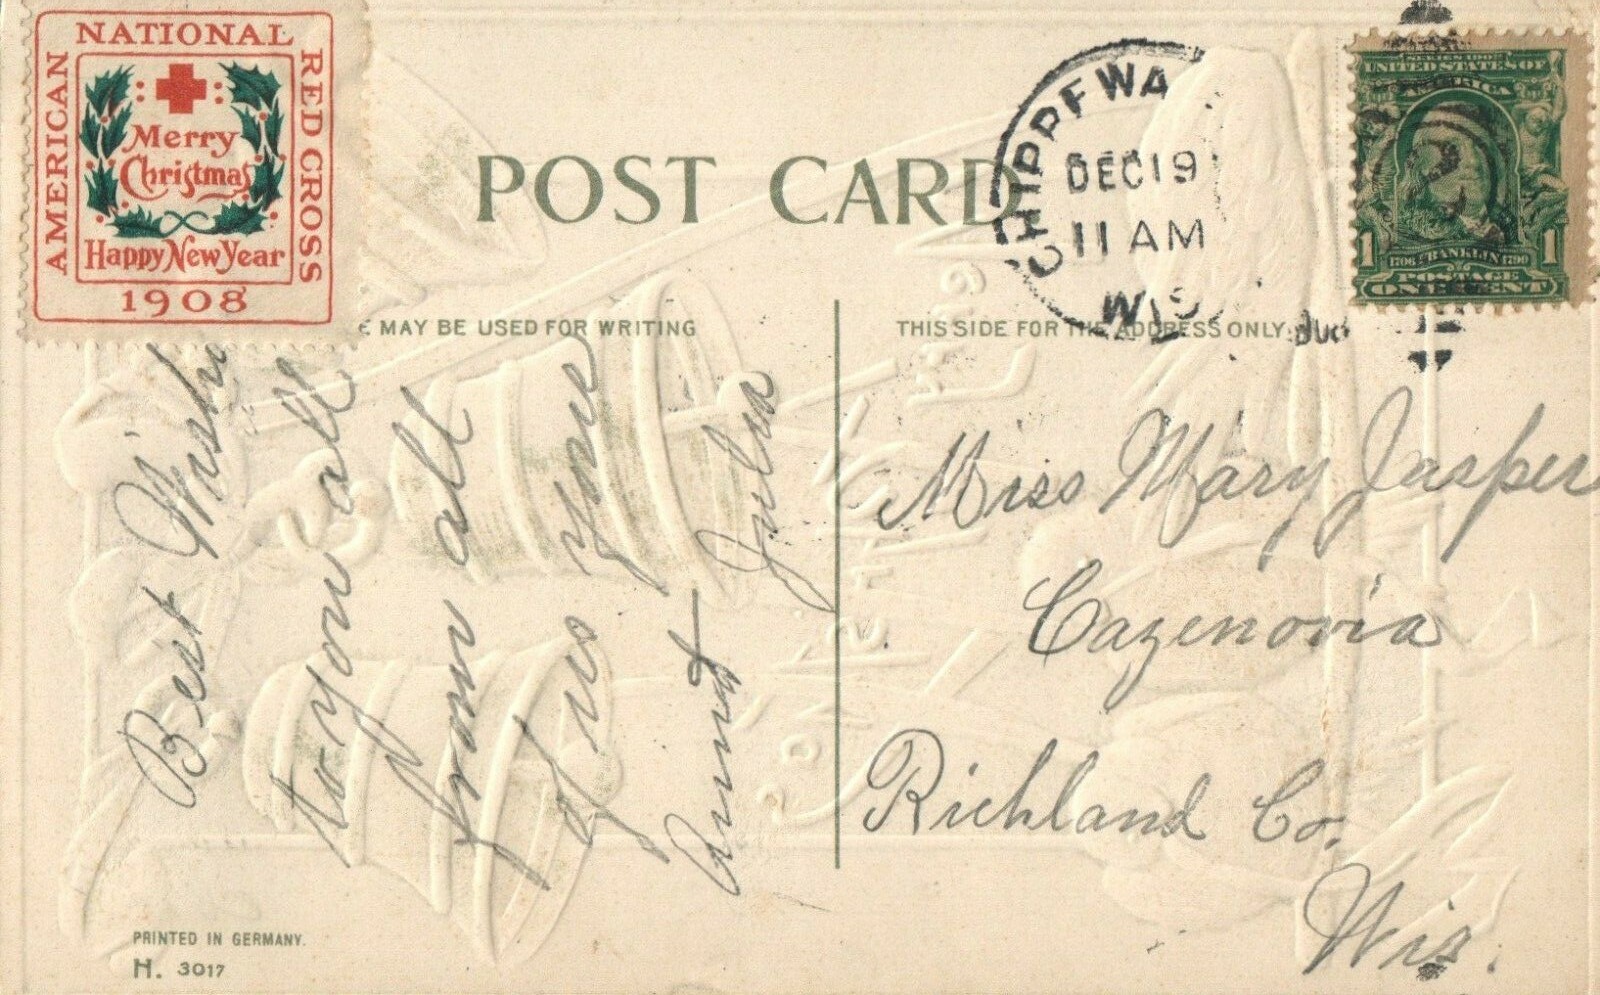 AMERICAN NATIONAL RED CROSS
Merry
Christmas
Happy New Year
1908
POST CARD
CHIPPEWA
DEC 19
11 AM
WIS
SERIES 1902
UNITED STATES OF
AMERICA
1706 FRANKLIN 1790
1 1
POSTAGE
ONE CENT
E MAY BE USED FOR WRITING
THIS SIDE FOR THE ADDRESS ONLY.
Best Wishe
to you all
from all
of us
Aunt Julia
Miss Mary Jasper
Cazenovia
Richland Co.
Wis.
PRINTED IN GERMANY.
H. 3017